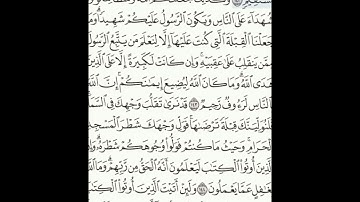 شُهَدَآءَ عَلَى ٱلنَّاسِ وَيَكُونَ ٱلرَّسُولُ عَلَيْكُمْ شَهِيدًا وَمَا
جَعَلْنَا ٱلْقِبْلَةَ ٱلَّتِى كُنتَ عَلَيْهَآ إِلَّا لِنَعْلَمَ مَن يَتَّبِعُ ٱلرَّسُولَ
مِمَّن يَنقَلِبُ عَلَىٰ عَقِبَيْهِ وَإِن كَانَتْ لَكَبِيرَةً إِلَّا عَلَى ٱلَّذِينَ
هَدَى ٱللَّهُ وَمَا كَانَ ٱللَّهُ لِيُضِيعَ إِيمَٰنَكُمْ إِنَّ ٱللَّهَ
ٱلنَّاسِ لَرَءُوفٌ رَّحِيمٌ ١٤٣ قَدْ نَرَىٰ تَقَلُّبَ وَجْهِكَ فِى ٱلسَّمَآ
فَلَنُوَلِّيَنَّكَ قِبْلَةً تَرْضَىٰهَا فَوَلِّ وَجْهَكَ شَطْرَ ٱلْمَسْجِدِ
ٱلْحَرَامِ وَحَيْثُ مَا كُنتُمْ فَوَلُّوا۟ وُجُوهَكُمْ شَطْرَهُۥ وَإِنَّ
ٱلَّذِينَ أُوتُوا۟ ٱلْكِتَٰبَ لَيَعْلَمُونَ أَنَّهُ ٱلْحَقُّ مِن رَّبِّهِمْ وَمَا ٱللَّهُ
بِغَٰفِلٍ عَمَّا يَعْمَلُونَ ١٤٤ وَلَئِنْ أَتَيْتَ ٱلَّذِينَ أُوتُوا۟ ٱلْكِتَٰبَ